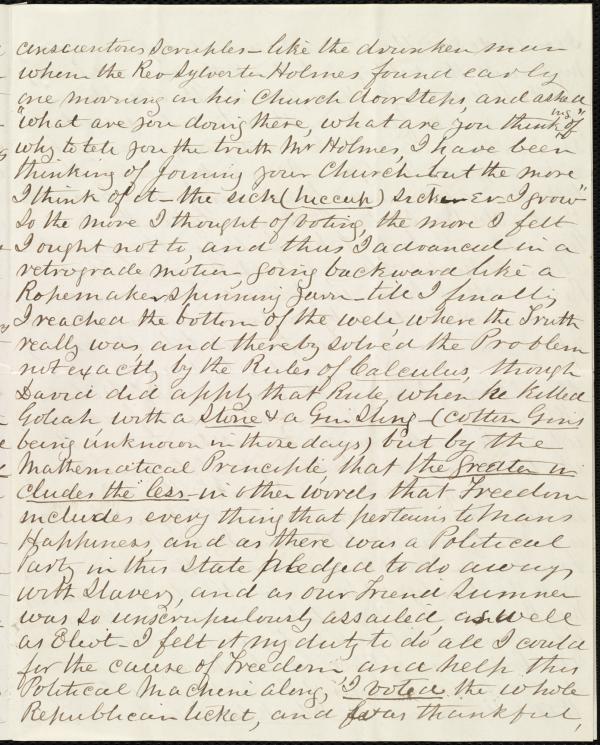 conscientous scruples - like the drunken man
whom the Rev Sylvester Holmes found early
one morning on his Church door steps, and asked
"what are you doing there, what are you thinking of"
why to tell you the truth Mr Holmes, I have been
thinking of joining your Church but the more
I think of it - the sick (hiccup) sicker I grow"
So the more I thought of voting, the more I felt
I ought not to, and thus I advanced in a
retrograde motion going backward like a
Ropemaker spinning yarn - till I finally
I reached the bottom of the well where the Truth
really was, and thereby solved the Problem
not exactly by the Rules of Calculus, though
David did apply that Rule, when he killed
Goliah with a Stone & a Gin Sling - (cotton Gins
being unknown in those days) but by the
Mathematical Principle, that the greater in
cludes the less - in other words that Freedom
includes every thing that pertains to Mans
Happiness, and as there was a Political
Party in this State pledged to do away
with Slavery, and as our Friend Sumner
was so unscrupulously assailed, as well
as Eliot - I felt it my duty to do all I could
for the cause of Freedom and help this
Political Machine along, I voted the whole
Republican ticket, and was thankful,